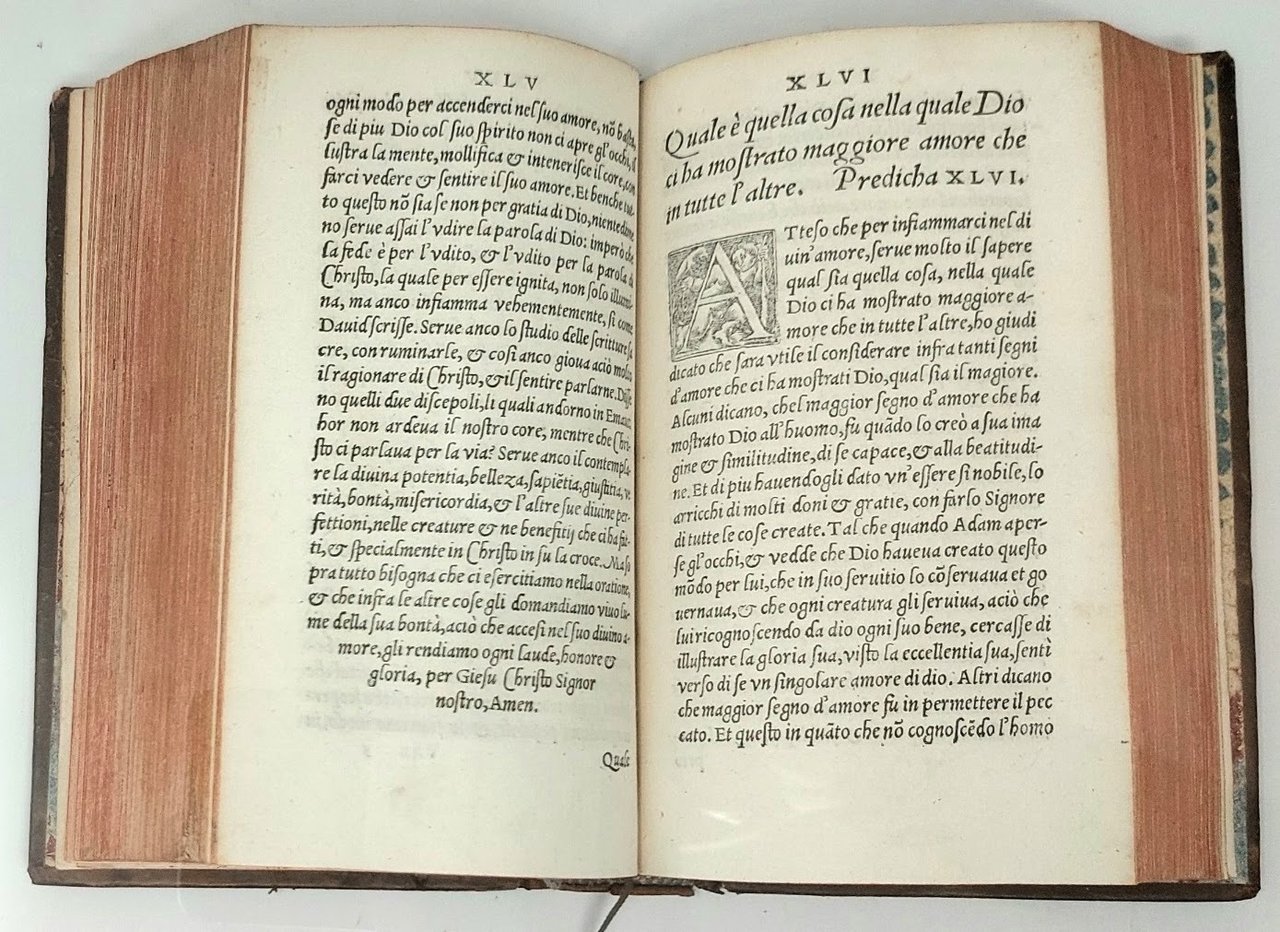 XLV
ogni modo per accenderci nel suo amore, nõ basta,
se di piu Dio col suo spirito non ci apre gl'occhi, il
lustra la mente, mollifica & intenerisce il core, con
farci vedere & sentire il suo amore. Et benche tut
to questo nõ sia se non per gratia di Dio, niente dime
no serue assai l'vdire la parola di Dio: imperò che
la fede è per l'vdito, & l'vdito per la parola di
Christo, la quale per essere ignita, non solo illumi
na, ma anco infiamma vehementemente, si come
Dauid scrisse. Serue anco lo studio delle scritture sa
cre, con ruminarle, & cosi anco gioua aciò molto
il ragionare di Christo, & il sentire parlarne. Disse
no quelli due discepoli, li quali andorno in Emaus
hor non ardeua il nostro core, mentre che Chri-
sto ci parlaua per la via? Serue anco il contempla
re la divina potentia, belleza, sapiẽtia, giustitia, ve
rità, bontà, misericordia, & l'altre sue divine per-
fettioni, nelle creature & ne benefitij che ci ha fat
ti, & specialmente in Christo in su la croce. Ma so
pra tutto bisogna che ci esercitiamo nella oratione,
& che infra le altre cose gli domandiamo viuo lu-
me della sua bontà, aciò che accesi nel suo diuino a-
more, gli rendiamo ogni laude, honore &
gloria, per Giesu Christo Signor
nostro, Amen.
Quale
XLVI
Quale è quella cosa nella quale Dio
ci ha mostrato maggiore amore che
in tutte l'altre. Predicha XLVI.
ATteso che per infiammarci nel di
uin'amore, serue molto il sapere
qual sia quella cosa, nella quale
Dio ci ha mostrato maggiore a-
more che in tutte l'altre, ho giudi
dicato che sara vtile il considerare infra tanti segni
d'amore che ci ha mostrati Dio, qual sia il magiore.
Alcuni dicano, chel maggior segno d'amore che ha
mostrato Dio all'huomo, fù quãdo lo creò a sua ima
gine & similitudine, di se capace, & alla beatitudi-
ne. Et di piu hauendogli dato vn'essere si nobile, lo
arricchi di molti doni & gratie, con farlo Signore
di tutte le cose create. Tal che quando Adam aper-
se gl'occhi, & vedde che Dio haueua creato questo
mõdo per lui, che in suo seruitio lo cõseruaua et go
uernaua, & che ogni creatura gli seruiua, aciò che
lui ricognoscendo da dio ogni suo bene, cercasse di
illustrare la gloria sua, visto la eccellentia sua, sentì
verso di se vn singolare amore di dio. Altri dicano
che maggior segno d'amore fu in permettere il pec
cato. Et questo in quãto che nõ cognoscẽdo l'homo